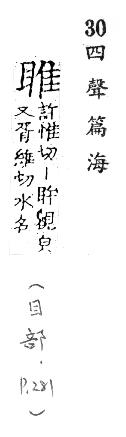 30
四聲篇海
睢
許惟切丨盱視皃
又胥維切水名
（目部．P.281）